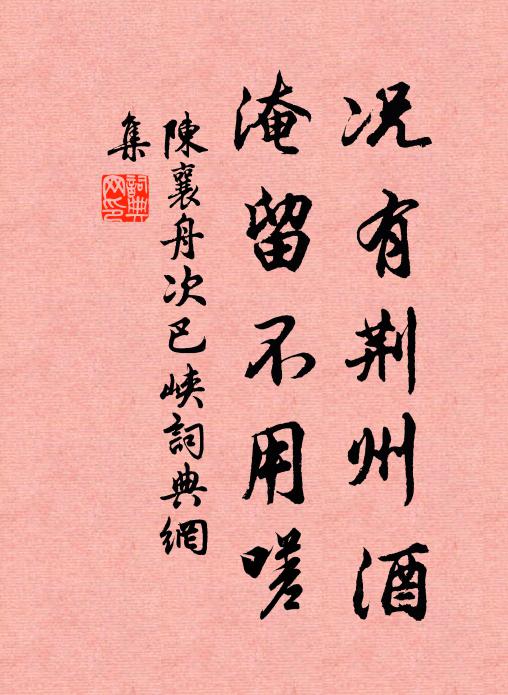 况有荆州酒
淹留不用嗟
陳襄舟次巴峽詞典網
集
詞典
网印